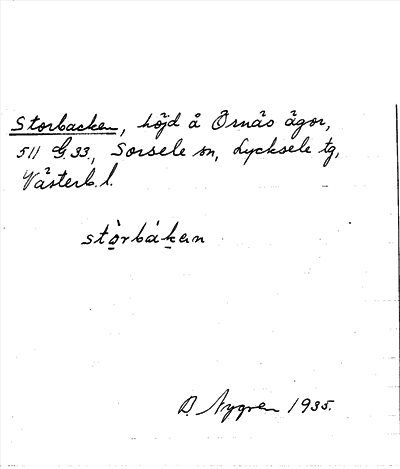 Storbacken, höjd å Örnäs ägor,
511 G. 33., Sorsele sn, Lycksele tg,
Västerb. l.
stòrbákan
D. Nygren 1935.